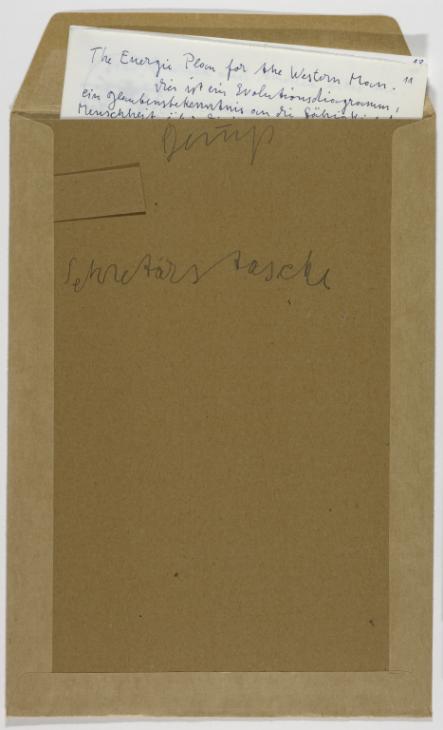 The Energie Plan for the Western Man.
Dies ist ein Evolutionsdiagramm,
ein Glaubensbekenntnis an die
Menschheit
11
Sekretärstasche